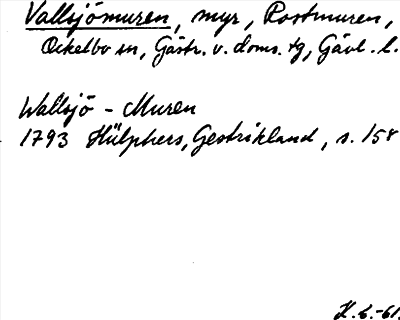 Vallsjömuren, myr, Rostmuren,
Ockelbo sn, Gästr. v. doms. tg, Gävl. l.
Wallsjö - Muren
1793 Hülphers, Gestrikland, s. 158